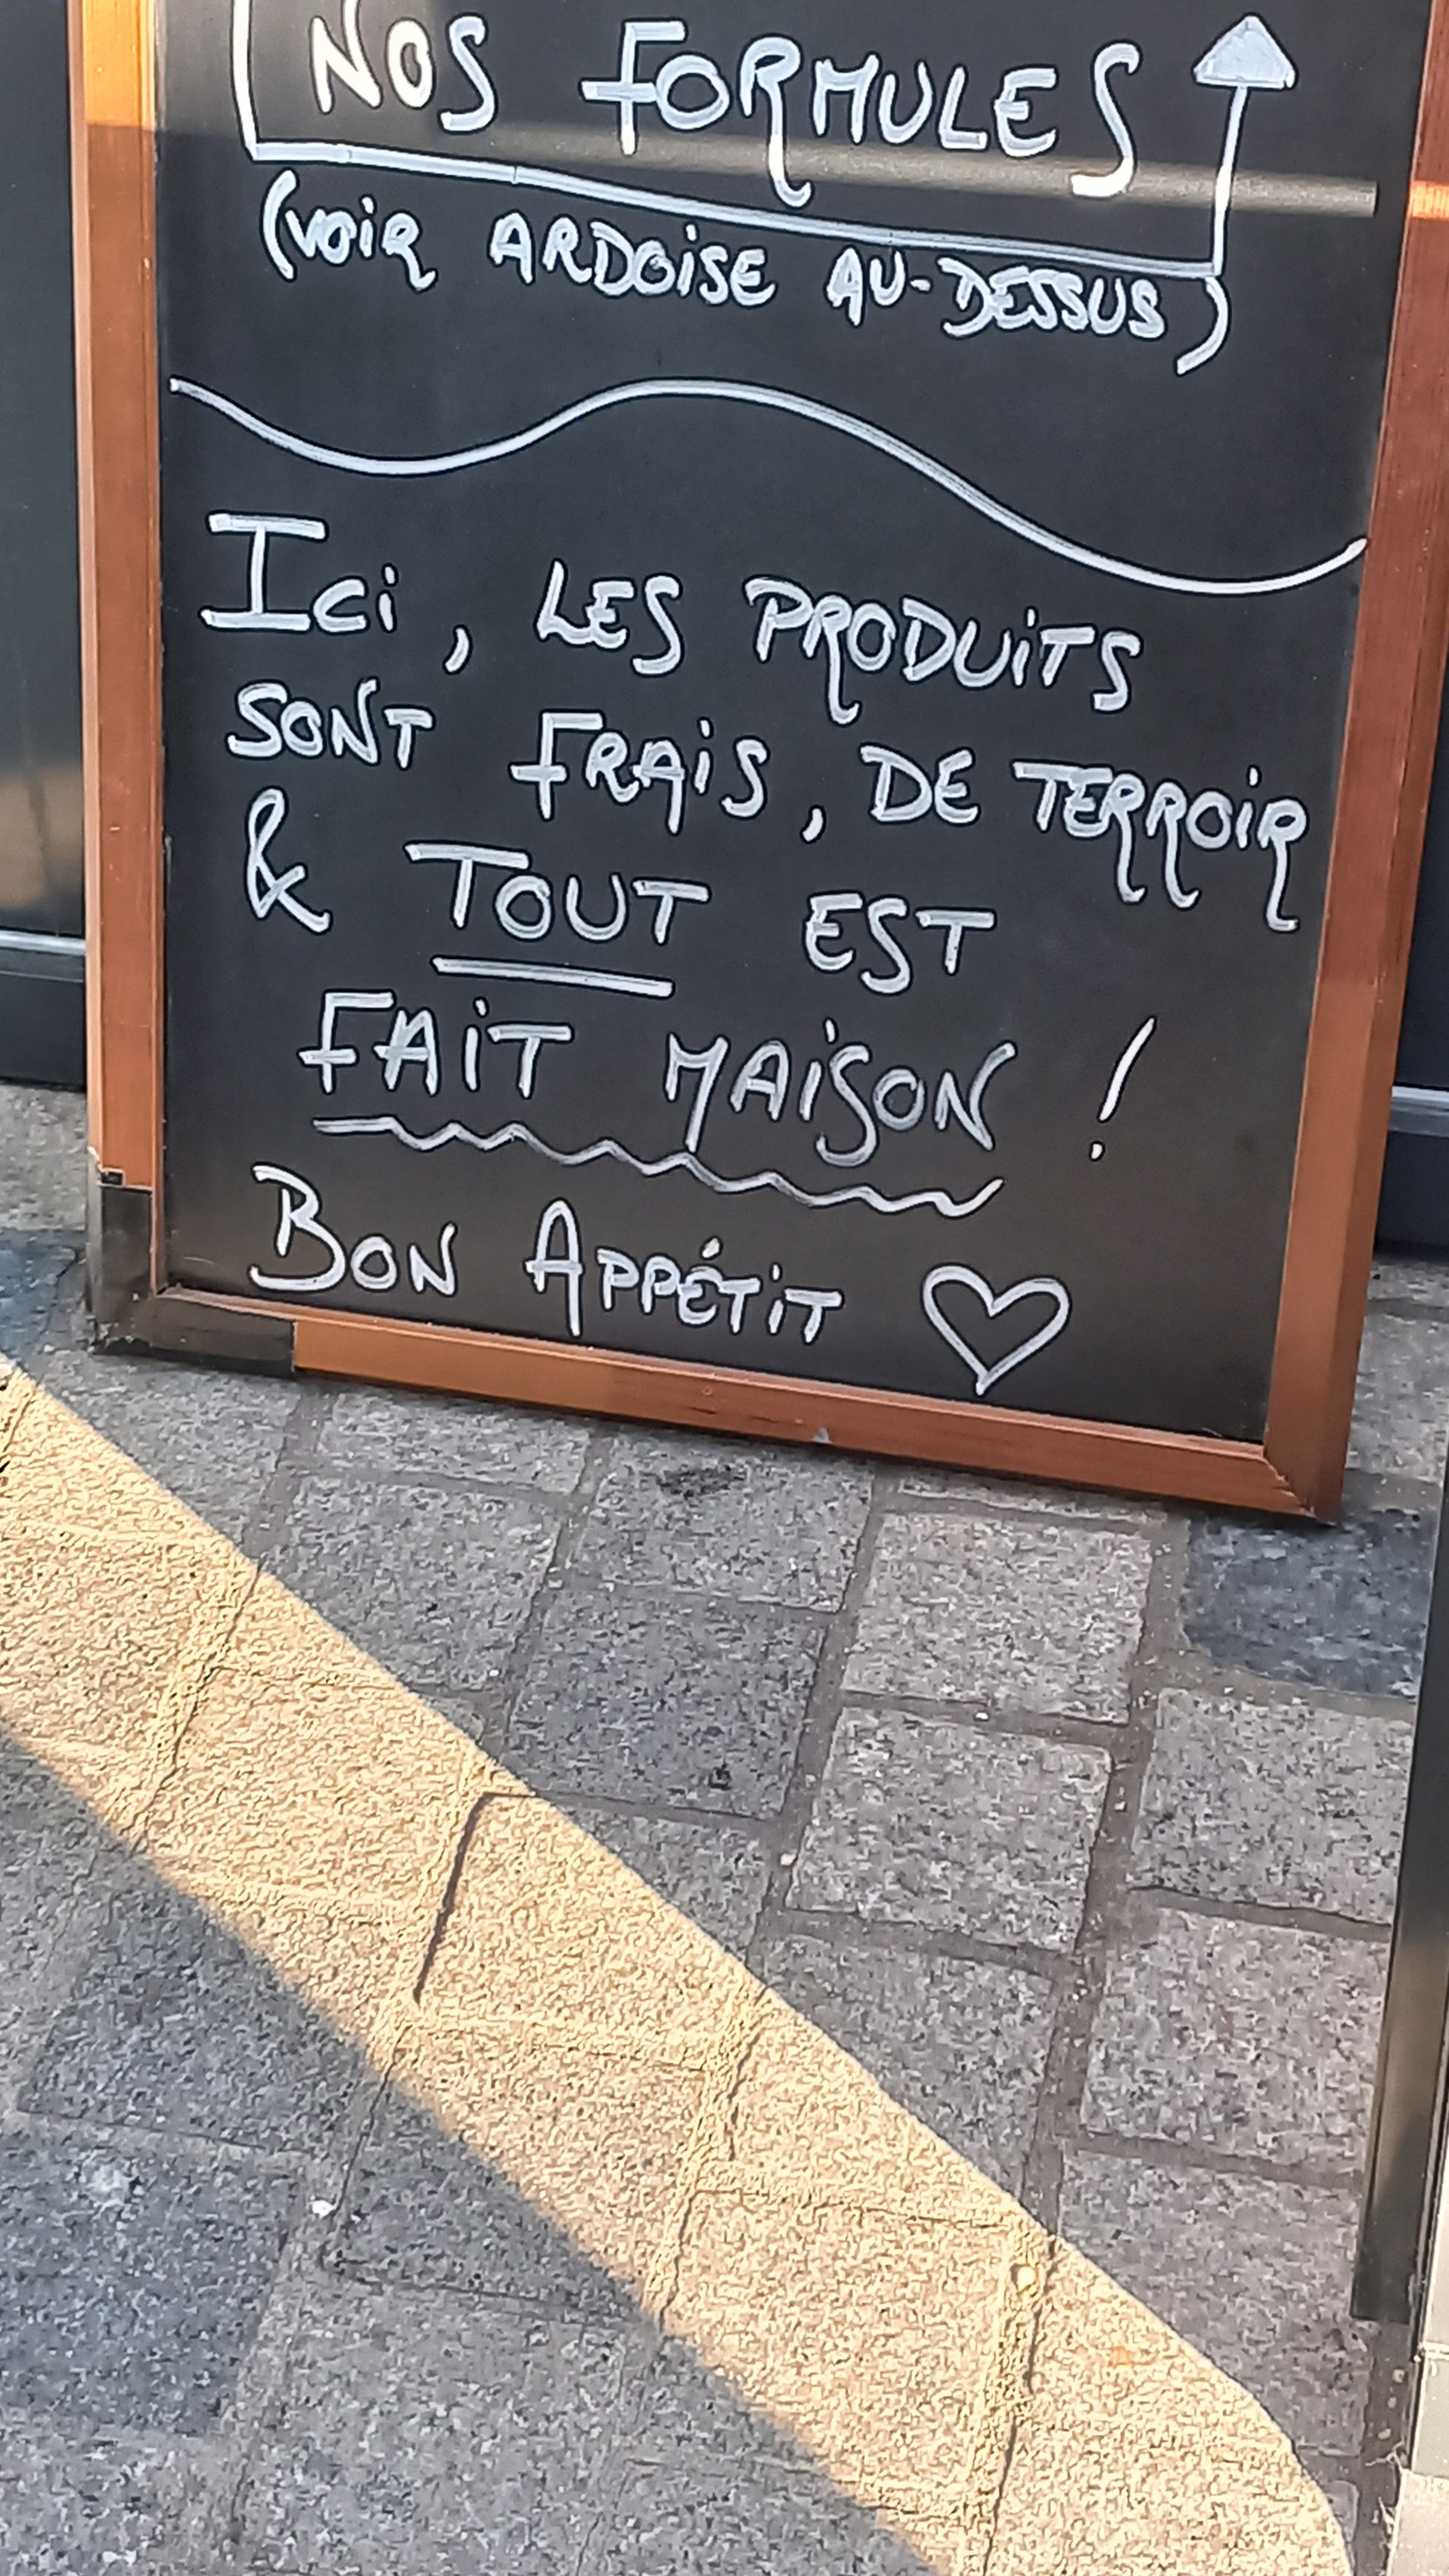 NOS FORMULES
(VOIR ARDOISE AU-DESSUS)
ICI, LES PRODUITS
SONT FRAIS, DE TERROIR
& TOUT EST
FAIT MAISON !
BON APPÉTIT ♡